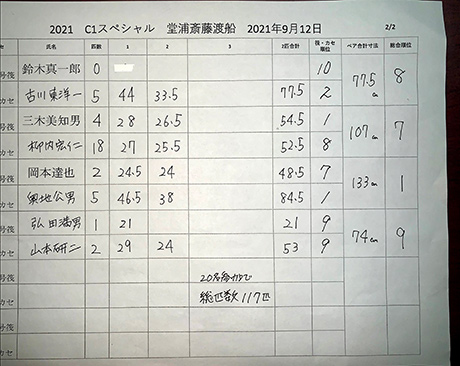 2021 C1スペシャル 堂浦斎藤渡船 2021年9月12日 2/2
氏名 匹数 1 2 3 2匹合計 筏・カセ順位 ペア合計寸法 総合順位
号筏 鈴木真一郎 0 10 77.5cm 8
カセ 古川東洋一 5 44 33.5 77.5 2
号筏 三木美知男 4 28 26.5 54.5 1 107cm 7
カセ 柳内宏仁 18 27 25.5 52.5 8
号筏 岡本達也 2 24.5 24 48.5 7 133cm 1
カセ 奥地公男 5 46.5 38 84.5 1
号筏 弘田満男 1 21 21 9 74cm 9
カセ 山本研二 2 29 24 53 9
号筏 20名
カセ 総匹数 117匹
号筏
カセ